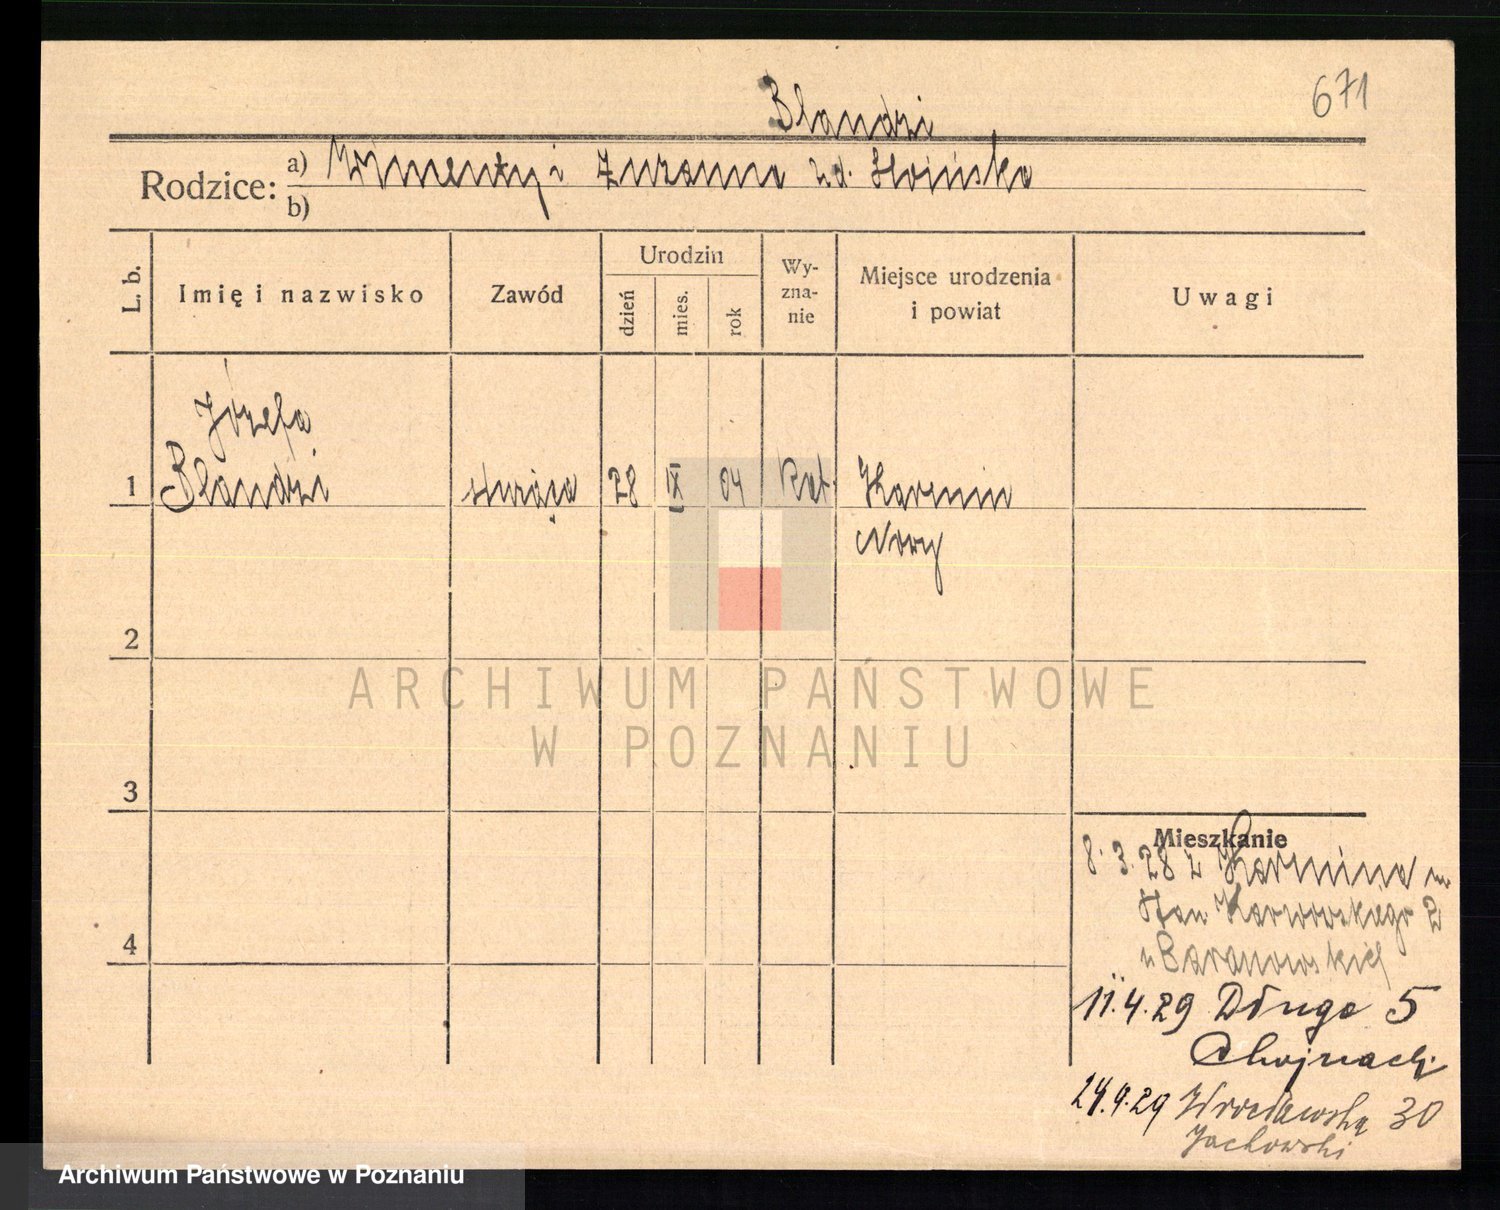 671
Blandzi
Rodzice: a) Zuzanna zd. Słoińska
b)
L. b.
Imię i nazwisko
Zawód
Urodzin
dzień
mies.
rok
Wy-
zna-
nie
Miejsce urodzenia
i powiat
Uwagi
Józefa
1 Blandzi służąca 28 IX 04 Kat. Karmin
Nowy
2
3
4
ARCHIWUM PAŃSTWOWE
W POZNANIU
Mieszkanie
8.3.28 z Karmina
Karwowskiego 2
u Baranowskiej
11.4.29 Długa 5
Chojnacki
24.9.29 Wrocławska 30
Jachowski
Archiwum Państwowe w Poznaniu